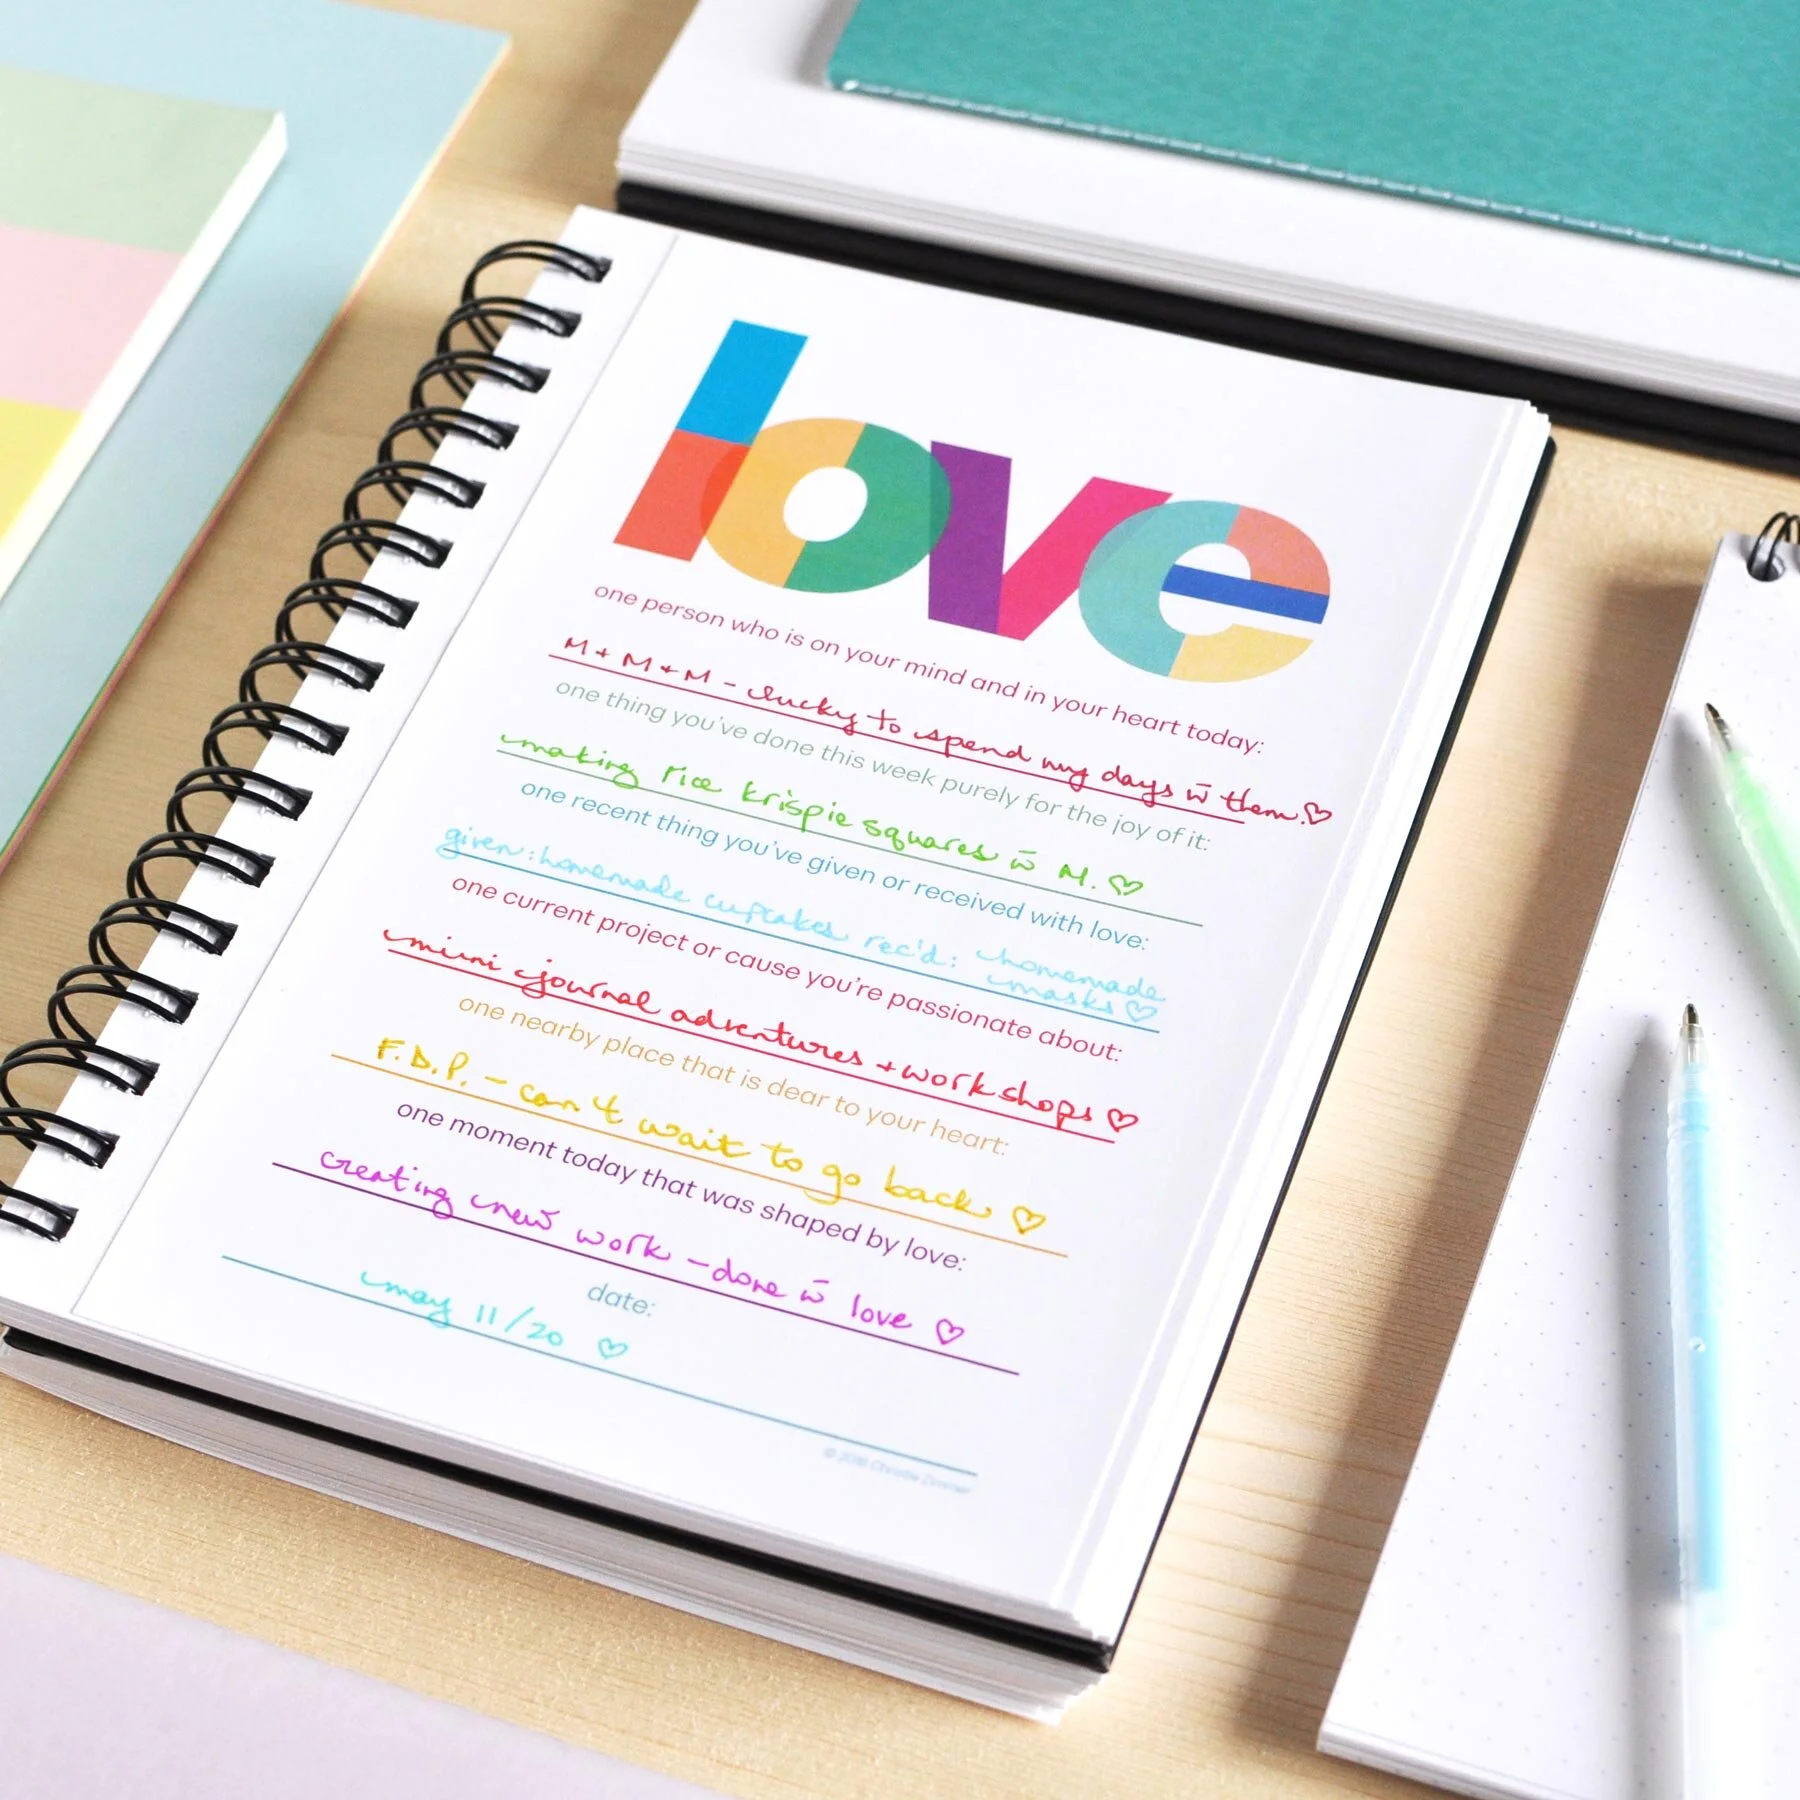 love
one person who is on your mind and in your heart today:
M + M + M - lucky to spend my days w̄ them. ♡
one thing you've done this week purely for the joy of it:
making rice krispie squares w̄ M. ♡
one recent thing you've given or received with love:
given: homemade cupcakes rec'd: homemade
masks ♡
one current project or cause you're passionate about:
mini journal adventures + workshops ♡
one nearby place that is dear to your heart:
F.D.P. - can't wait to go back ♡
one moment today that was shaped by love:
creating new work - done w̄ love ♡
date:
may 11/20 ♡
Christie Zimmer